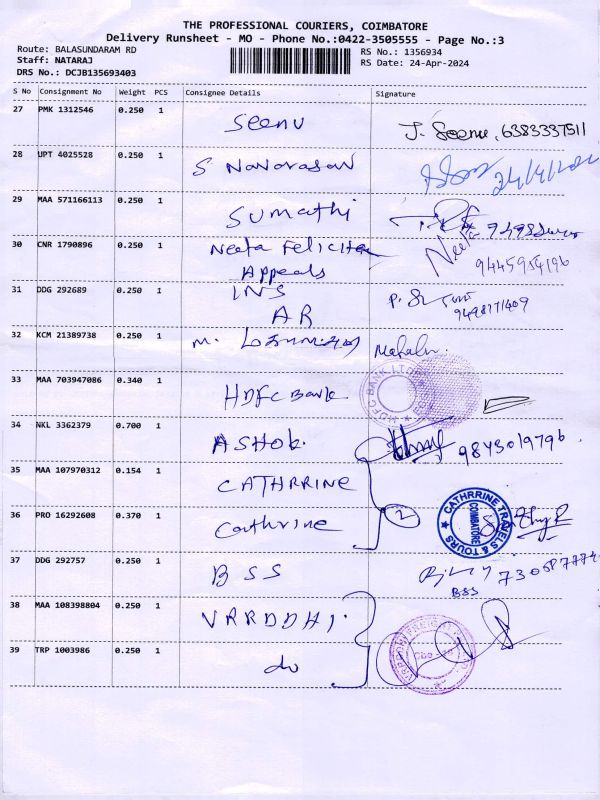 THE PROFESSIONAL COURIERS, COIMBATORE
Delivery Runsheet - MO - Phone No.:0422-3505555 - Page No.:3
Route: BALASUNDARAM RD
Staff: NATARAJ
DRS No.: DCJB135693403
RS No.: 1356934
RS Date: 24-Apr-2024
S No Consignment No Weight PCS Consignee Details Signature
27 PMK 1312546 0.250 1 Seenu J. Seenu, 6383337511
28 UPT 4025528 0.250 1 S Navarasan
29 MAA 571166113 0.250 1 Sumathi
30 CNR 1790896 0.250 1 Neeta Felicitea Neeta 9445954196
Appeals
31 DDG 292689 0.250 1 INS
AR 9498171409
32 KCM 21389738 0.250 1 m. Mahalu.
33 MAA 703947086 0.340 1 HDFC Bank HDFC BANK LTD
34 NKL 3362379 0.700 1 ASHOK. 9843019796
35 MAA 107970312 0.154 1 CATHRRINE
36 PRO 16292608 0.370 1 Cathrine 2 CATHRRINE TRAVELS & TOURS COIMBATORE
37 DDG 292757 0.250 1 BSS BSS
38 MAA 108398804 0.250 1 VRRDDHI.
39 TRP 1003986 0.250 1 do